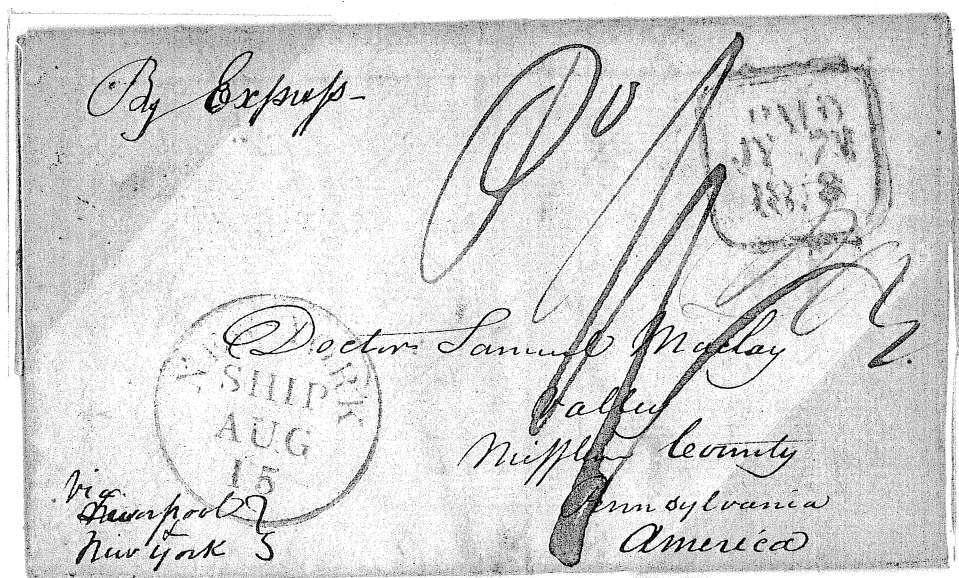 By Express
NEW YORK
SHIP
AUG
15
Doctor Samuel Maclay
Valley
Mifflin County
Pennsylvania
America
via
Liverpool
&
New York